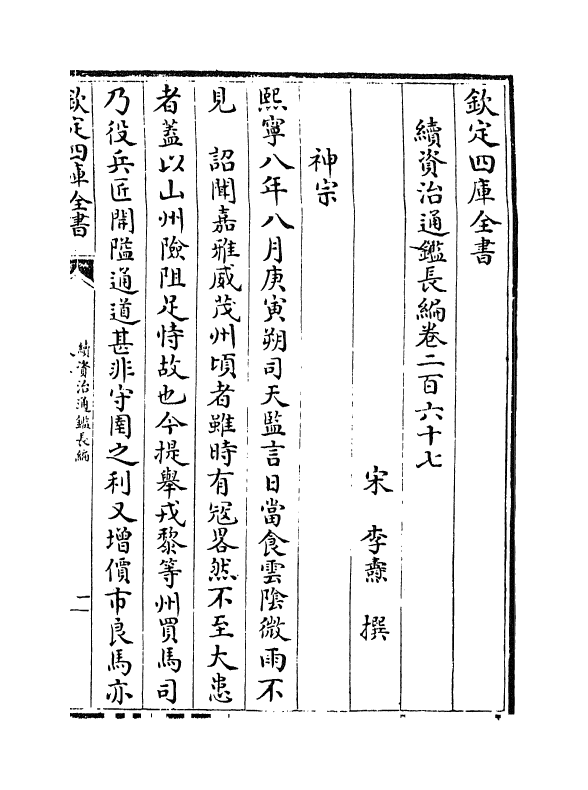 欽定四庫全書
續資治通鑑長編卷二百六十七
宋　李燾　撰
神宗
熙寧八年八月庚寅朔司天監言日當食雲陰微雨不
見　詔聞嘉雅威茂州頃者雖時有寇畧然不至大患
者蓋以山州險阻足恃故也今提舉戎黎等州買馬司
乃役兵匠開隘通道甚非守圉之利又增價市良馬亦
欽定四庫全書
續資治通鑑長編